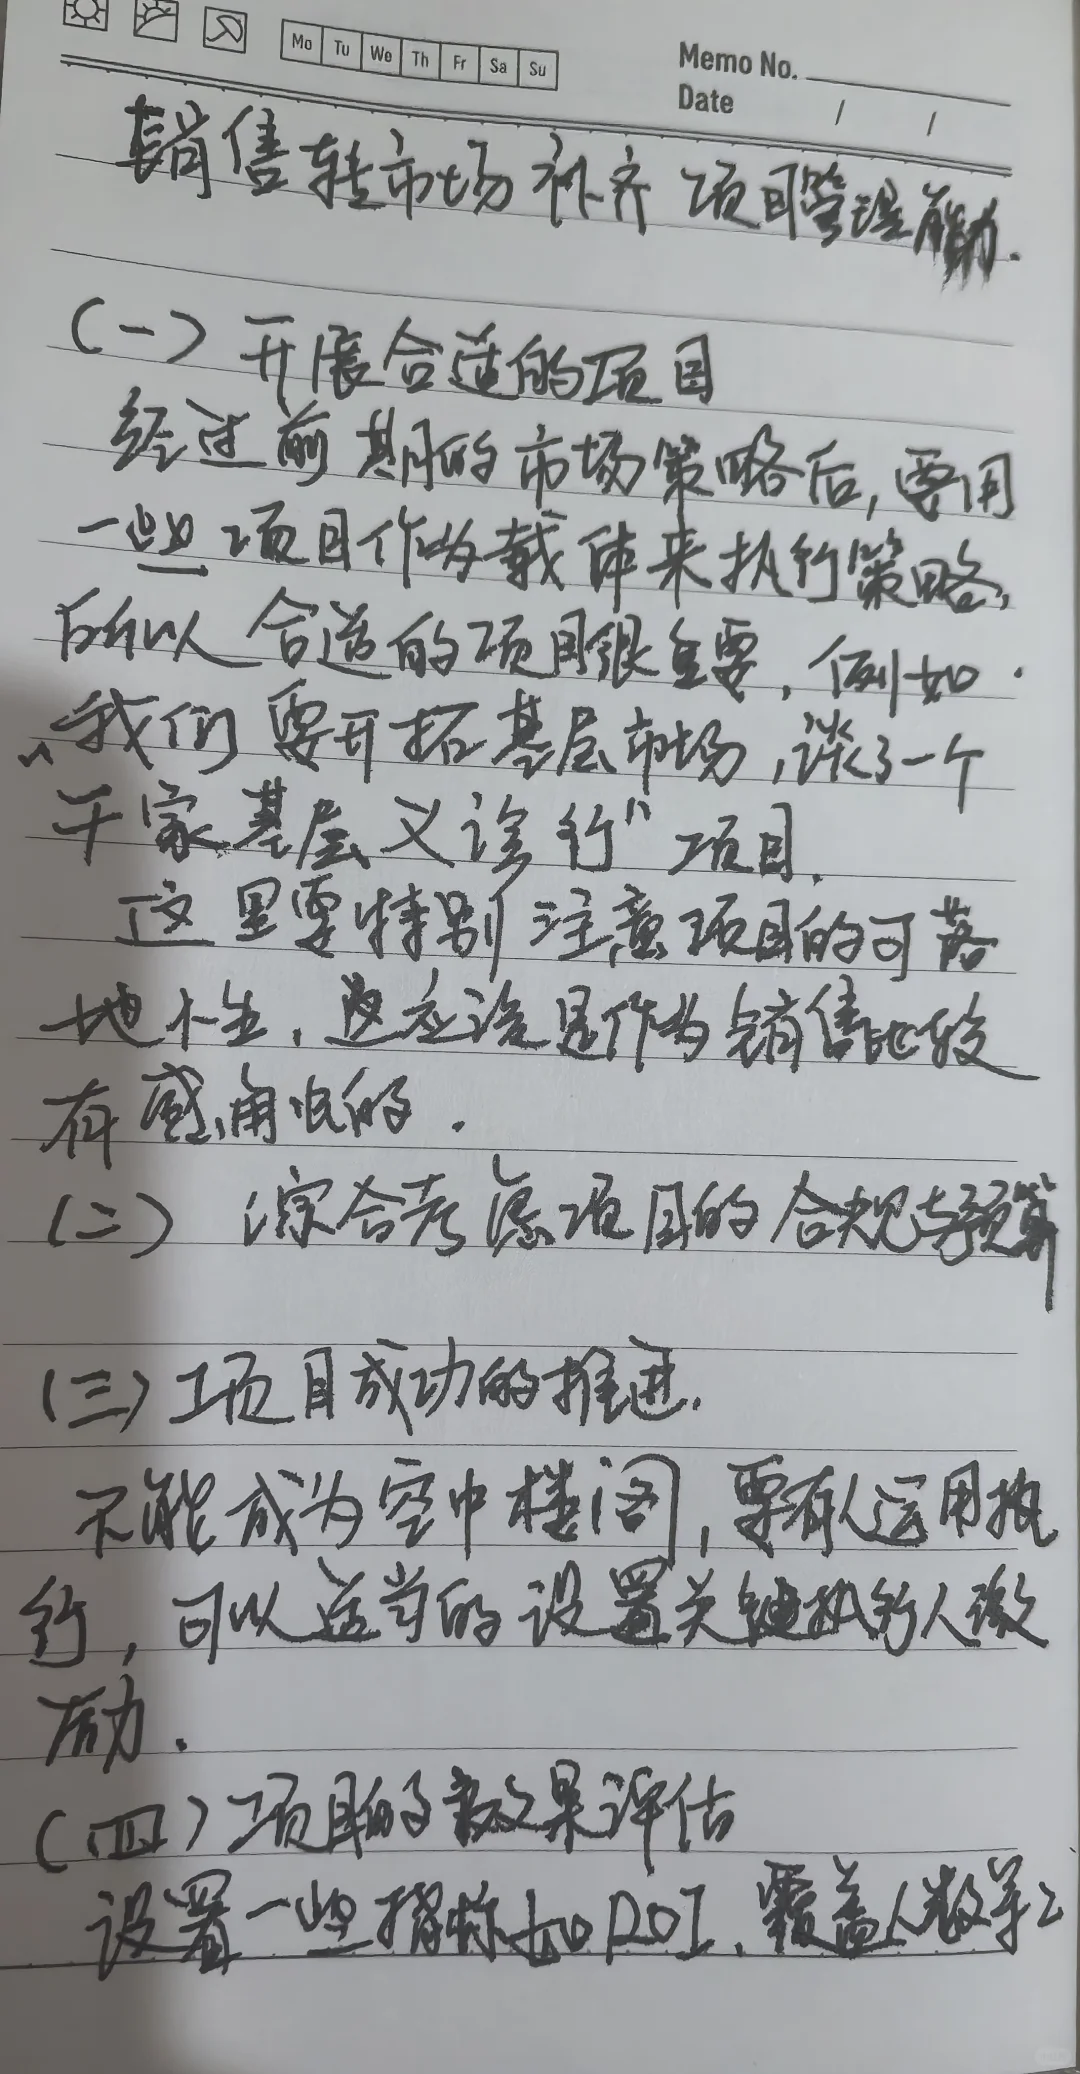 Mo Tu We Th Fr Sa Su
Memo No.
Date / /
销售转市场补齐项目管理能力.
(一)开展合适的项目
经过前期的市场策略后,要用
一些项目作为载体来执行策略,
所以合适的项目很重要,例如
"我们要开拓基层市场,谈了一个
千家基层义诊行"项目.
这里要特别注意项目的可落
地性,这应该是作为销售比较
有感触的.
(二) 综合考虑项目的合规与预算
(三)项目成功的推进.
不能成为空中楼阁,要有人运用执
行,可以适当的设置关键执行人激
励.
(四)项目的效果评估
设置一些指标如ROI、覆盖人数等